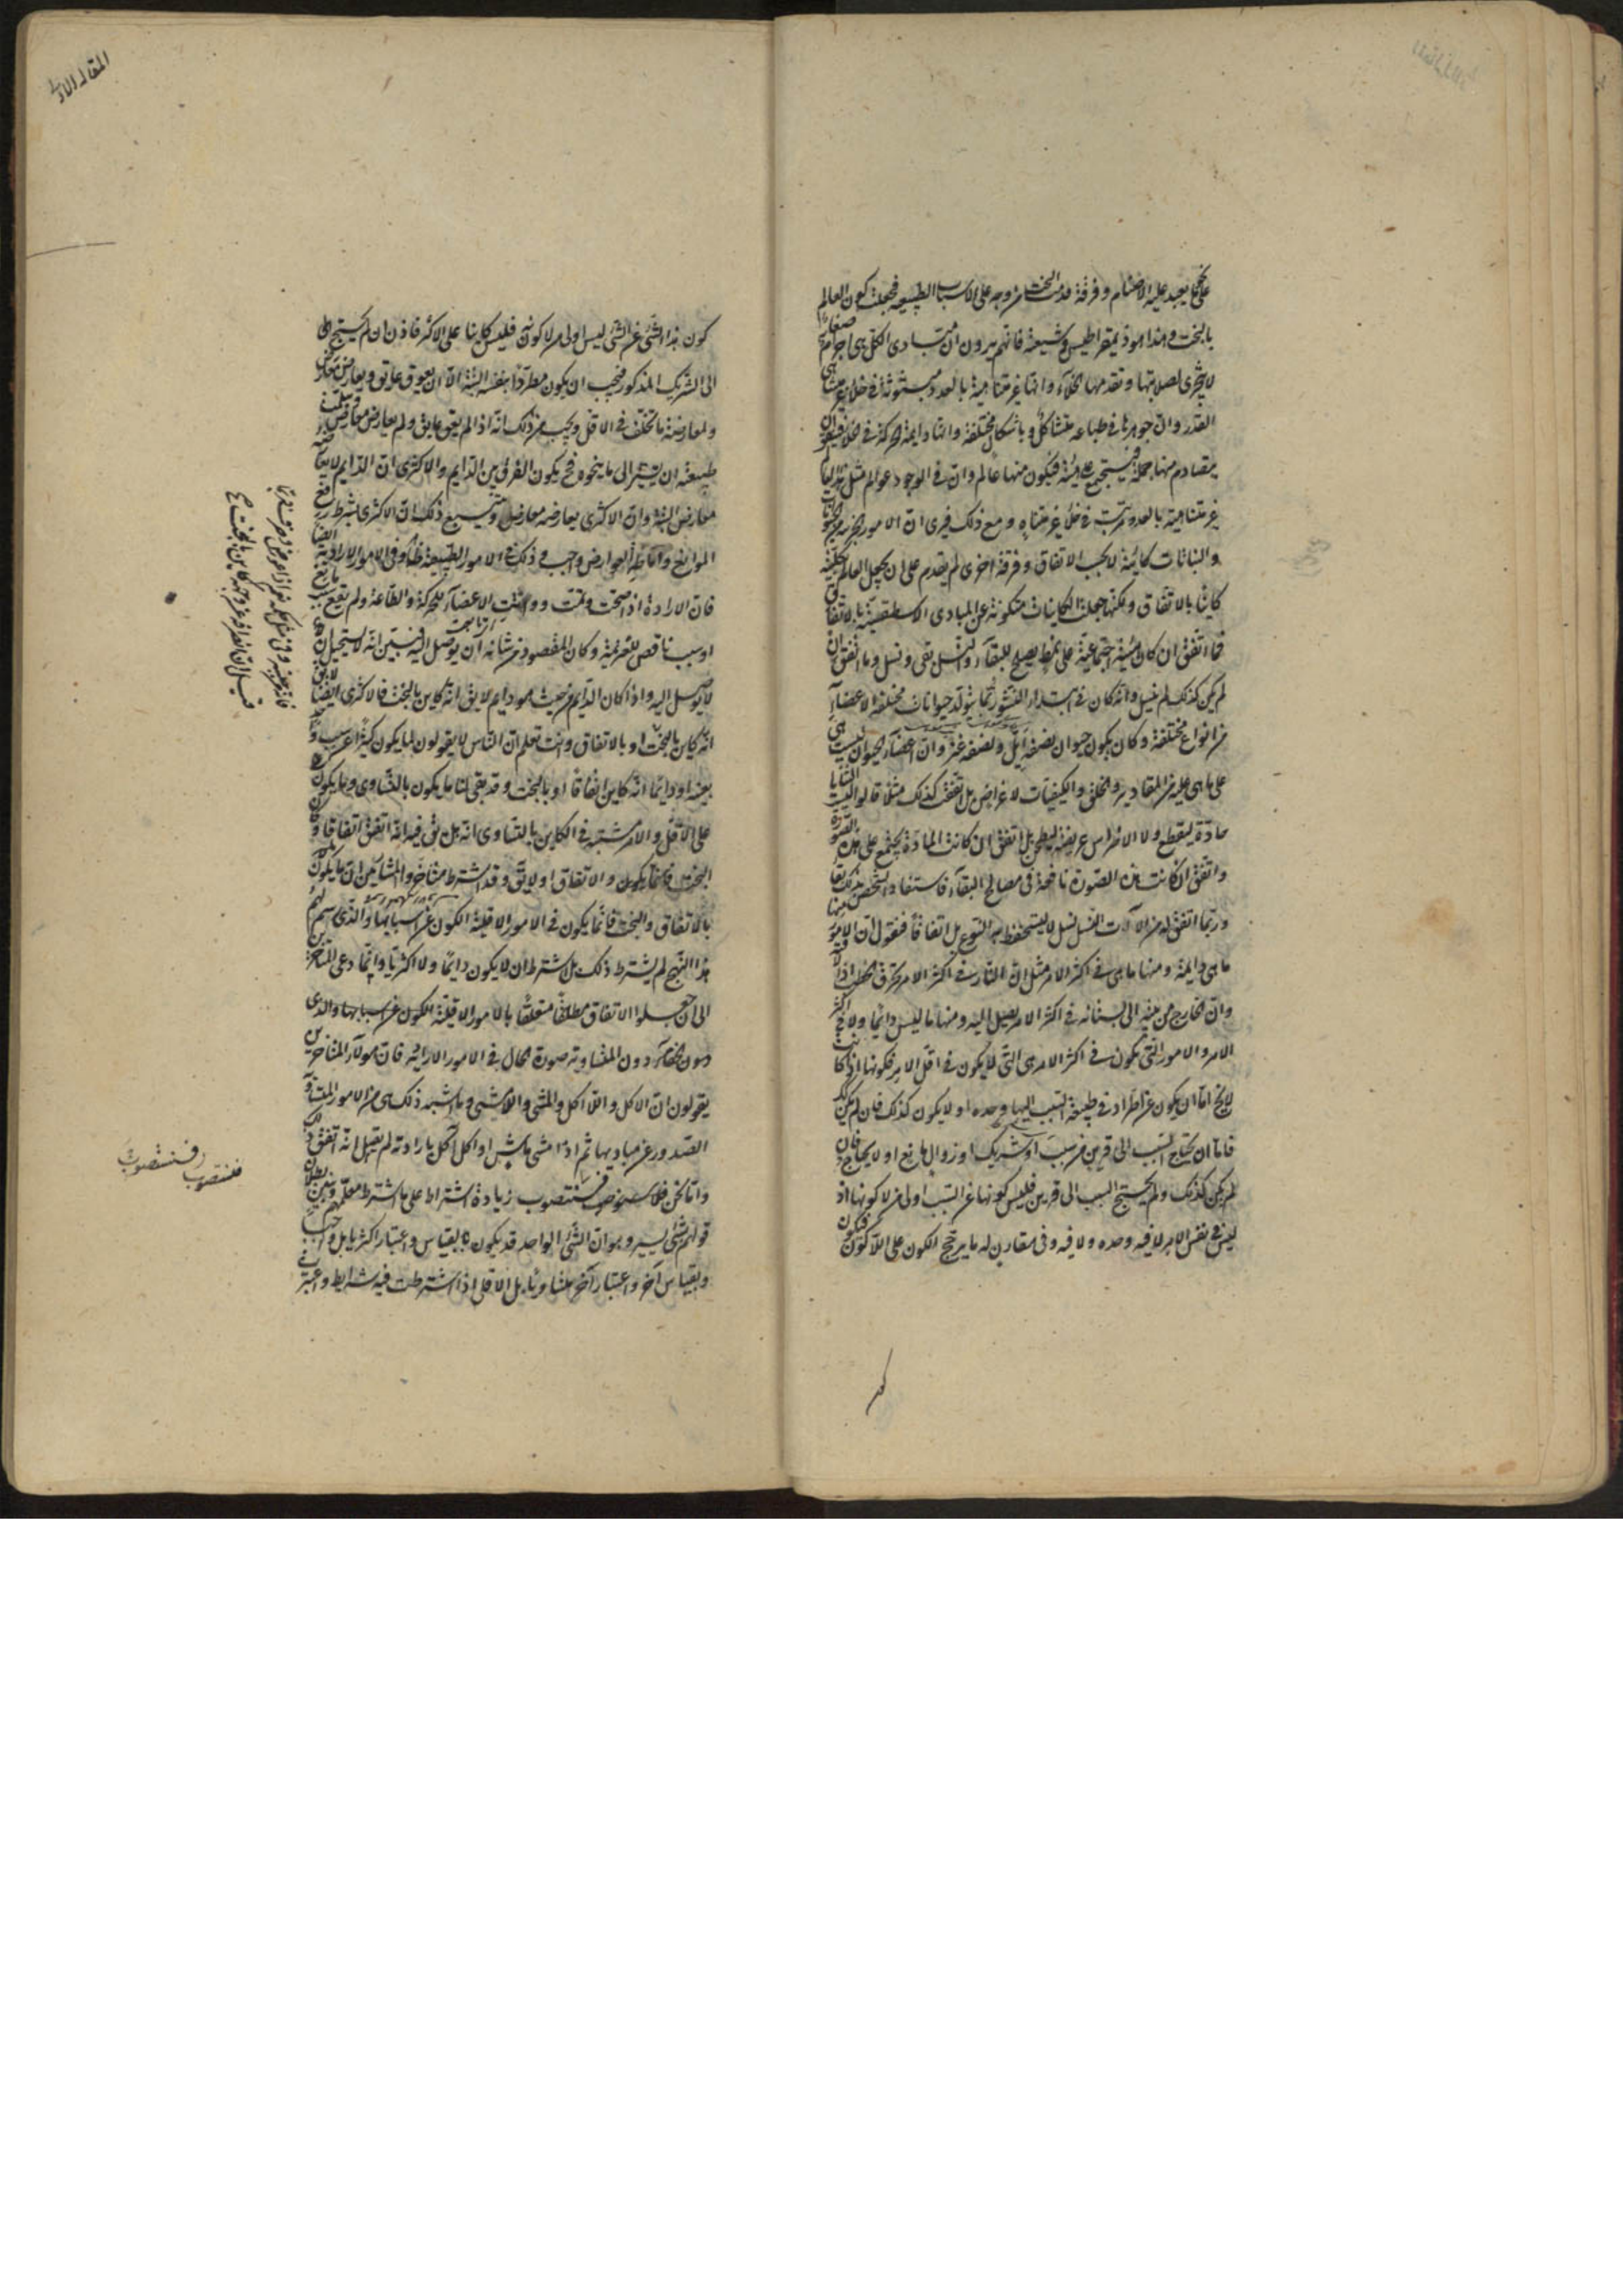 على نحو ما يعبد عليه الاصنام وفرقة قدمت البخت من وجه على الاسباب الطبيعية فجعلت كون العالم
بالبخت وهذا هو ذيمقراطيس وشيعته فانهم يرون ان مبادى الكل هى اجرام صغار
لا يتجزى لصلابتها وتقدمها الخلاء وانها غير متناهية بالعدد مبثوثة فى خلاء غير متناهى
القدر وان جوهرها فى طباعه متشاكل وباشكال مختلفة وانها دايمة الحركة فى الخلاء فيتفق ان
يتصادم منها جملة فيجتمع على هيئة فيكون منها عالم وان فى الوجود عوالم مثل هذا العالم
غير متناهية بالعدد مترتبة فى خلاء غير متناه ومع ذلك فيرى ان الامور الجزئية مثل الحيوانات
والنباتات كاينة لا بحسب الاتفاق وفرقة اخرى لم تقدم على ان يجعل العالم بكليته
كاينا بالاتفاق ولكنها جعلت الكاينات متكونة عن المبادى الاسطقسية بالاتفاق
فما اتفق ان كان هيئة اجتماعية على نمط يصلح للبقاء والنسل بقى ونسل وما اتفق ان
لم يكن كذلك لم ينسل وانه كان فى ابتداء النشو ربما يتولد حيوانات مختلفة الاعضاء
من انواع مختلفة وكان يكون حيوان نصفه ايل ونصفه عنز وان اعضاء الحيوان ليست هى
على ما هى عليه من المقادير والخلق والكيفيات لاغراض بل اتفقت كذلك مثلا قالوا ليست الثنايا
حادة ليقطع ولا الاضراس عريضة ليطحن بل اتفق ان كانت المادة يجتمع على هذه الصورة
واتفق ان كانت هذه الصورة نافعة فى مصالح البقاء فاستفاد الشخص بذلك بقاء
وربما اتفق له من الآلات النسل نسل لا ليستحفظ به النوع بل اتفاقا فنقول ان الامور منها
ما هى دايمة ومنها ما هى فى اكثر الامر مثل ان النار فى اكثر الامر تحرق الحطب اذا لاقته
وان الخارج من بيته الى بستانه فى اكثر الامر يصل اليه ومنها ما ليس دايما ولا فى اكثر
الامر والامور التى تكون فى اكثر الامر هى التى لا يكون فى اقل الامر فكونها اذا كانت
لا يخ اما ان يكون عن اطراد فى طبيعة السبب اليها وحده او لا يكون كذلك فان لم يكن كذلك
فاما ان يحتاج السبب الى قرين من سبب او شريك او زوال مانع او لا يحتاج فان
لم يكن كذلك ولم يحتج السبب الى قرين فليس كونها عن السبب اولى من لا كونها اذ
ليس فى نفس الامر لا فيه وحده ولا فيه وفى مقارن له ما يرجح الكون على اللاكون فيكون
المقالة الاولى
كون هذا الشئ عن الشئ ليس اولى من لا كونه فليس كاينا على الاكثر فاذن ان لم يحتج
الى الشريك المذكور فيجب ان يكون مطردا بنفسه البتة الا ان يعوق عايق ويعارض معارض
ولمعارضته ما تخلف فى الاقل ويجب من ذلك انه اذا لم يعق عايق ولم يعارض معارض وسلمت
طبيعته ان يستمر الى ما ينحوه فح يكون الفرق بين الدايم والاكثرى ان الدايم لا يعارضه
معارض البتة وان الاكثرى يعارضه معارض ويتبع ذلك ان الاكثرى بشرط رفع
الموانع واماطة العوارض واجب وذلك فى الامور الطبيعية ظ وفى الامور الارادية ايضا
فان الارادة اذا صحت وتمت وواتت الاعضاء للحركة والطاعة ولم يقع مانع
او سبب ناقص للعزيمة وكان المقصود من شانه ان يوصل اليه فبين انه لا يستحيل ان
لا يوصل اليه واذا كان الدايم من حيث هو دايم لا يق انه كاين بالبخت فالاكثرى ايضا
انه كاين بالبخت او بالاتفاق وانت تعلم ان الناس لا يقولون لما يكون كثيرا عن سبب
بعينه او دايما انه كاين اتفاقا او بالبخت وقد بقى لنا ما يكون بالتساوى وما يكون
على الاقل والامر مشتبه فى الكاين بالتساوى انه هل يق فيه انه اتفق اتفاقا
البخت والاتفاق او لا يق وقد اشترط متاخروا المشائين ان ما يكون
بالاتفاق والبخت فانما يكون فى الامور الاقلية الكون عن اسبابها والذى رسم لهم
هذا النهج لم يشترط ذلك بل اشترط ان لا يكون دايما ولا اكثريا وانما دعى المتاخرين
الى ان جعلوا الاتفاق مطلقا متعلقا بالامور الاقلية الكون عن اسبابها والذى
دون المتساوية صورة الحال فى الامور الارادية فان هؤلاء المتاخرين
يقولون ان الاكل واللااكل والمشى واللامشى وما اشبه ذلك هى من الامور المتساوية
الصدور عن مباديها ثم اذا مشى ماش او اكل آكل بارادته لم يقل انه اتفق ذلك
واما نحن فلا نستصوب زيادة اشتراط على ما اشترط معلمهم ونبين بطلان
قولهم بشئ يسير وهو ان الشئ الواحد قد يكون بالقياس واعتبار اكثريا بل واجبا
وبقياس آخر واعتبار آخر متساويا بل الاقلى اذا اشترطت فيه شرايط واعتبر
فنستصوب
فنستصوب